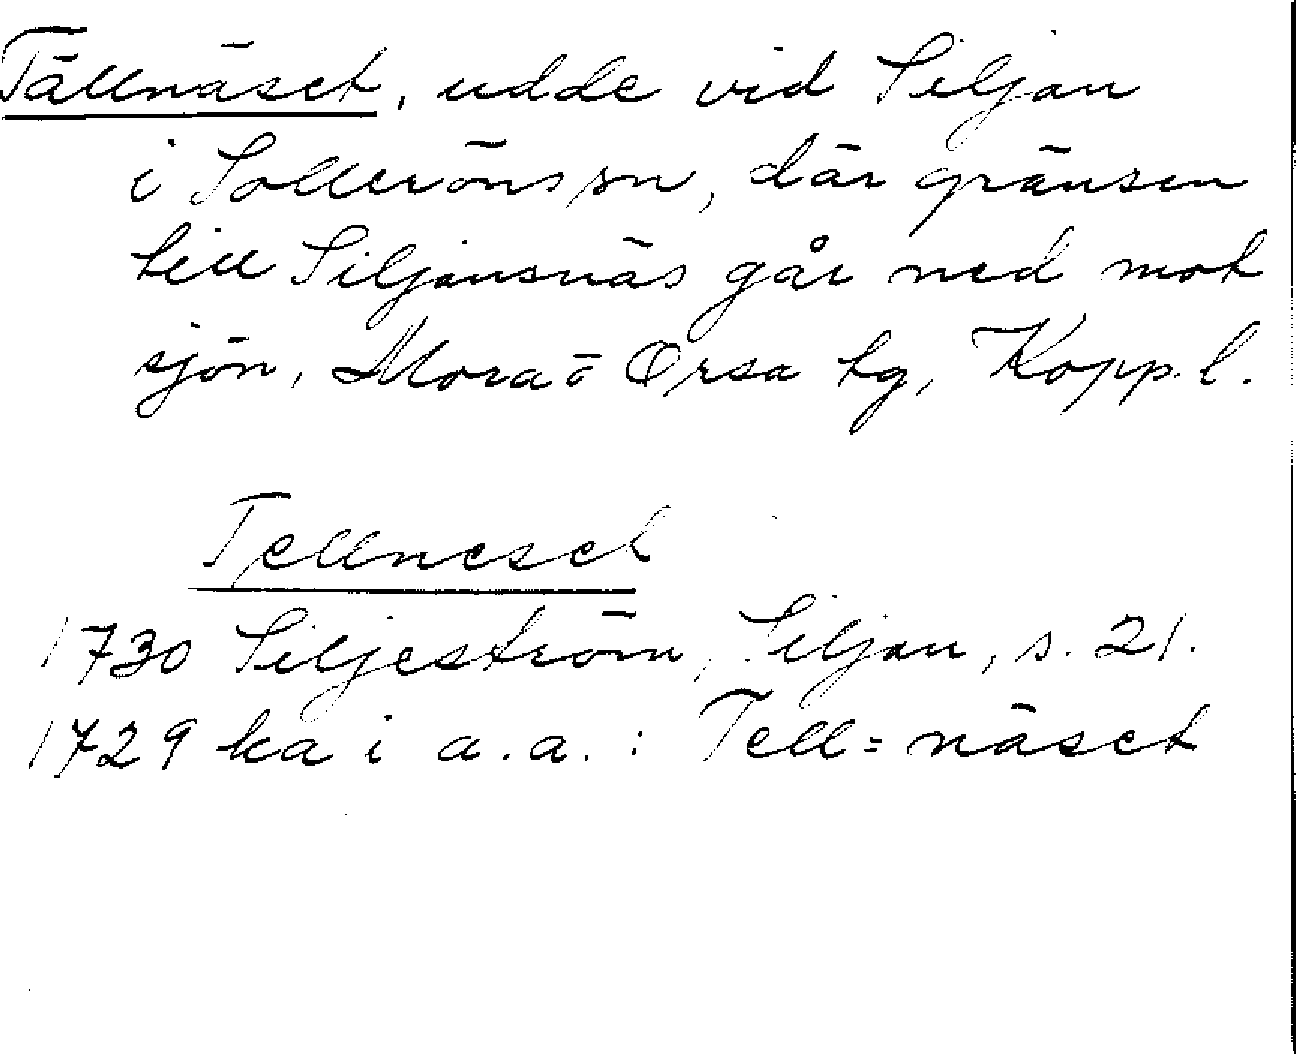 Tällnäset, udde vid Siljan
i Solleröns sn, där gränsen
till Siljansnäs går ned mot
sjön, Mora o Orsa tg, Kopp. l.
Tellneset
1730 Siljeström, Siljan, s. 21.
1729 ka i a.a.: Tell=näset